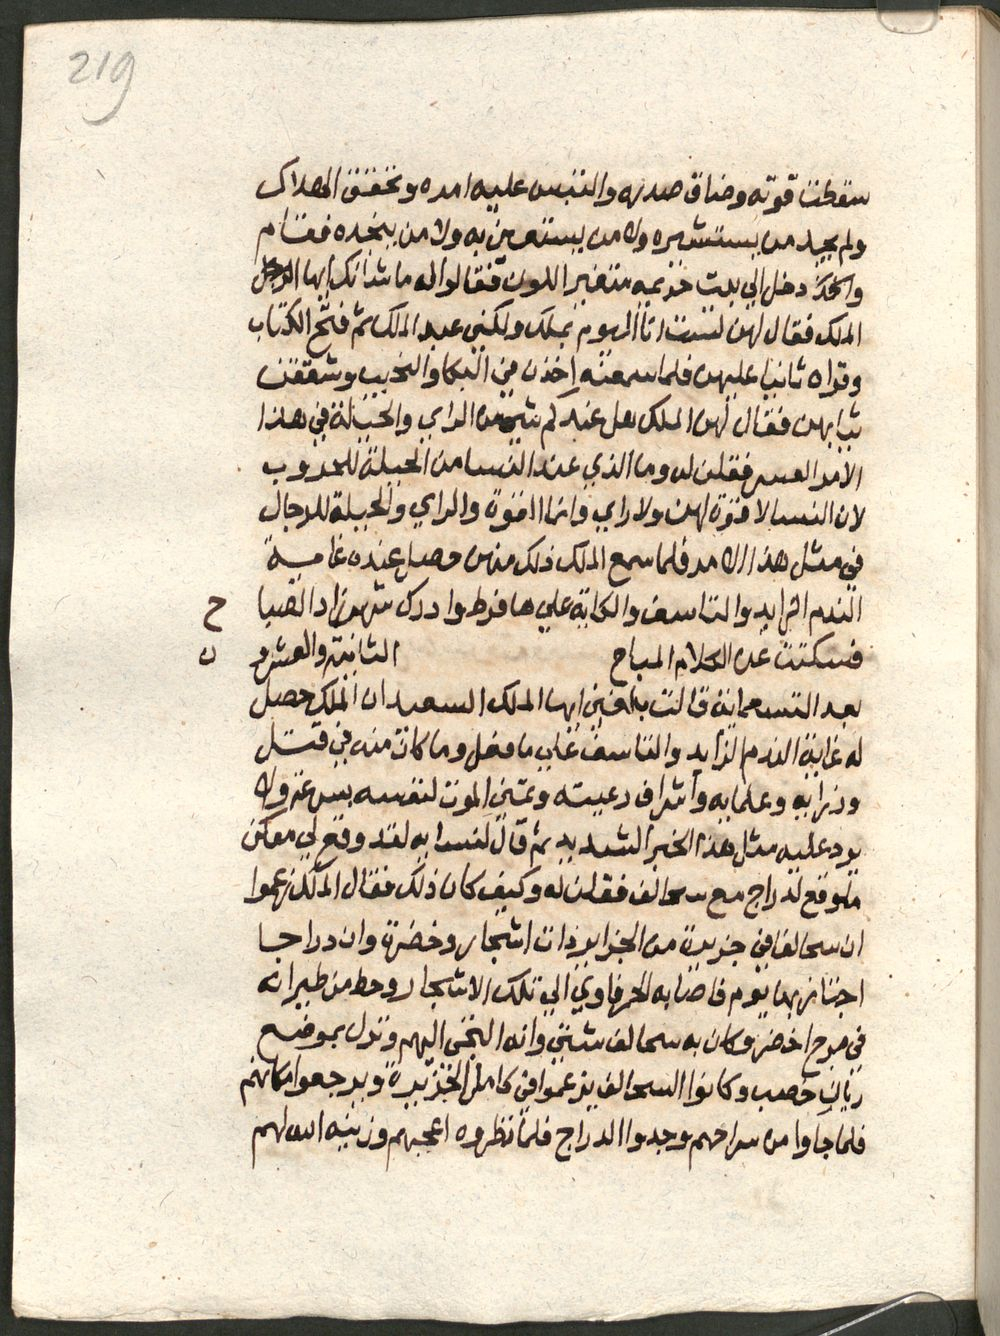 219
سقطت قوته وضاق صدره والتبس عليه امره وتحقق الهلاك
ولم يجد من يستشيره ولا من يستعين به ولا من ينجده فقام
دخل الي بيت حريمه متغير اللون فقالوا له ما شانك ايها
الملك فقال لهن لست انا اليوم بملك ولكني عبد الملك ثم فتح الكتاب
وقراه ثانيا عليهن فلما سمعنه اخذن في البكا والنحيب وشققن
ثيابهن فقال لهن الملك هل عندكم شي من الراي والحيلة في هذا
الامر العسر فقلن له وما الذي عند النسا من الحيلة للحروب
لان النسا لا قوة لهن ولا راي وانما القوة والراي والحيلة للرجال
في مثل هذا الامر فلما سمع الملك ذلك منهن حصل عنده غاية
الندم الزايد والتاسف والكابة علي ما فرط وادرك شهرزاد الصبا
ح
فسكتت عن الكلام المباح الثانية والعشرو
ن
بعد التسعماية قالت بلغني ايها الملك السعيد ان الملك حصل
له غاية الندم الزايد والتاسف علي ما فعل وما كان منه في قتل
وزرايه وعلمايه واشراف رعيته وتمني الموت لنفسه بسرعة ولا
يرد عليه مثل هذا الخبر الشديد ثم قال لنسايه لقد وقع لي معكن
ما وقع لدراج مع سحالف فقلن له وكيف كان ذلك فقال الملك زعموا
ان سحالفا في جزيرة من الجزاير ذات اشجار وخضرة وان دراجا
اجتاز بها يوم فاصابه الحر فاوي الي تلك الاشجار وحط من طيرانه
في مرج اخضر وكان به سحالف شتي وانه التجي اليهم ونزل بموضع
ريان خصب وكانوا السحالف يزعموا في كامل الجزيرة ويرجعوا مكانهم
فلما جاوا من سراحهم وجدوا الدراج فلما نظروه اعجبهم وزينه الله لهم